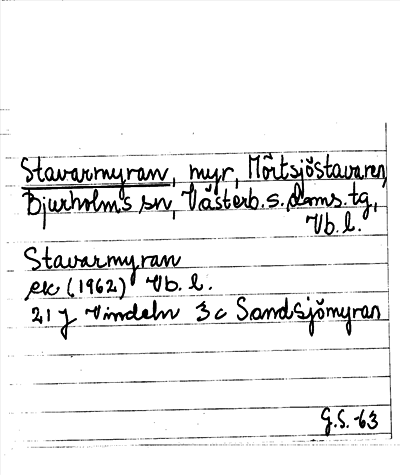 Stavarmyran, myr, Mörtsjöstavaren,
Bjurholms sn, Västerb. s. doms. tg,
Vb. l.
Stavarmyran
ek (1962) Vb. l.
21 J Vindeln 3c Sandsjömyran
G.S. -63